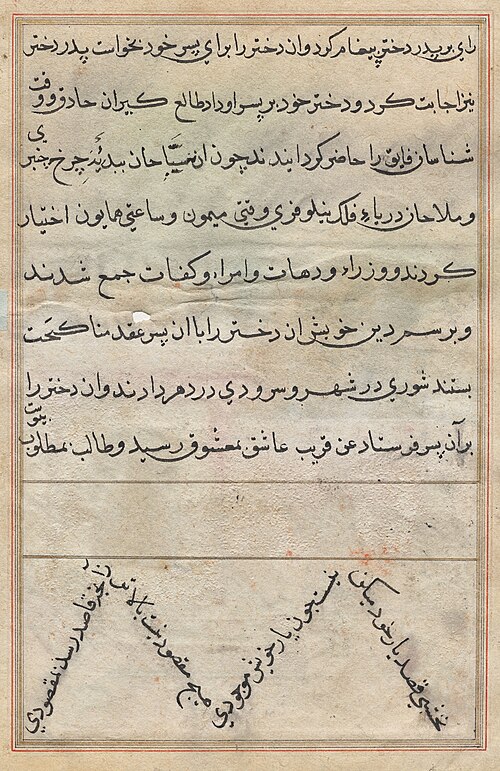 رای بر پدر دختر پیغام کرد وان دختر را برای پسر خود بخواست پدر دختر
نیز اجابت کرد و دختر خود بر پسر او داد طالع کیران حاذق و وقت
شناسان فایق را حاضر کردایندند چون ان سیاحان بیدای چرخ چنبری
و ملاحان دریاء فلک نیلوفری وقتی میمون و ساعتی همایون اختیار
کردند و وزراء و دهات و امراء و کفات جمع شدند
و بر سم دین خویش ان دختر را با ان پسر عقد مناکحت
بستند شوری در شهر و سرودی در دهر دادند وان دختر را
بر آن پسر فرستاد عن قریب عاشق بمعشوق رسید و طالب بمطلوب پیوست
نخشبی قصد یار خود میکن
نیست چون یار خویش موجودی
هیچ مقصود نیست بالاتر
زانچه قاصد رسد بمقصودی